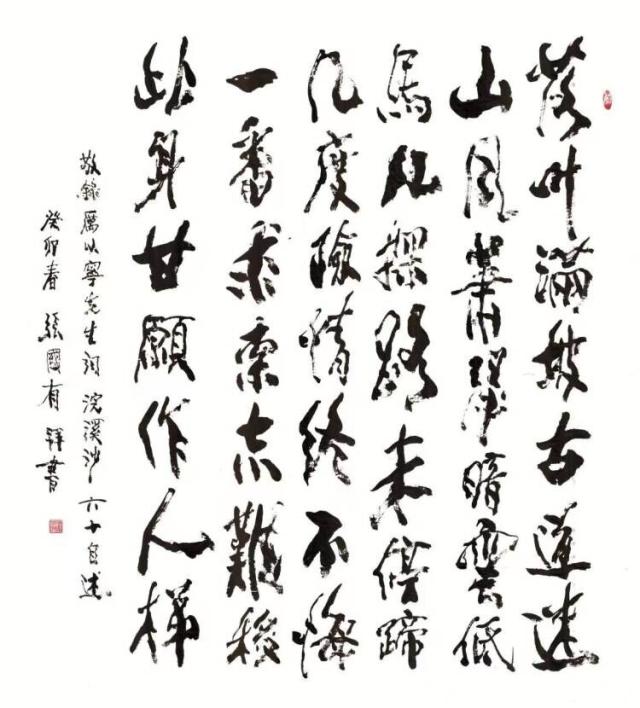 落叶滿坡古道迷
山风蕭瑟暗雲低
馬儿探路未停蹄
几度險情終不悔
一番求索志難移
此身甘願作人梯
敬錄厲以寧先生詞 浣溪沙 六十自述
癸卯春 張國有 拜書